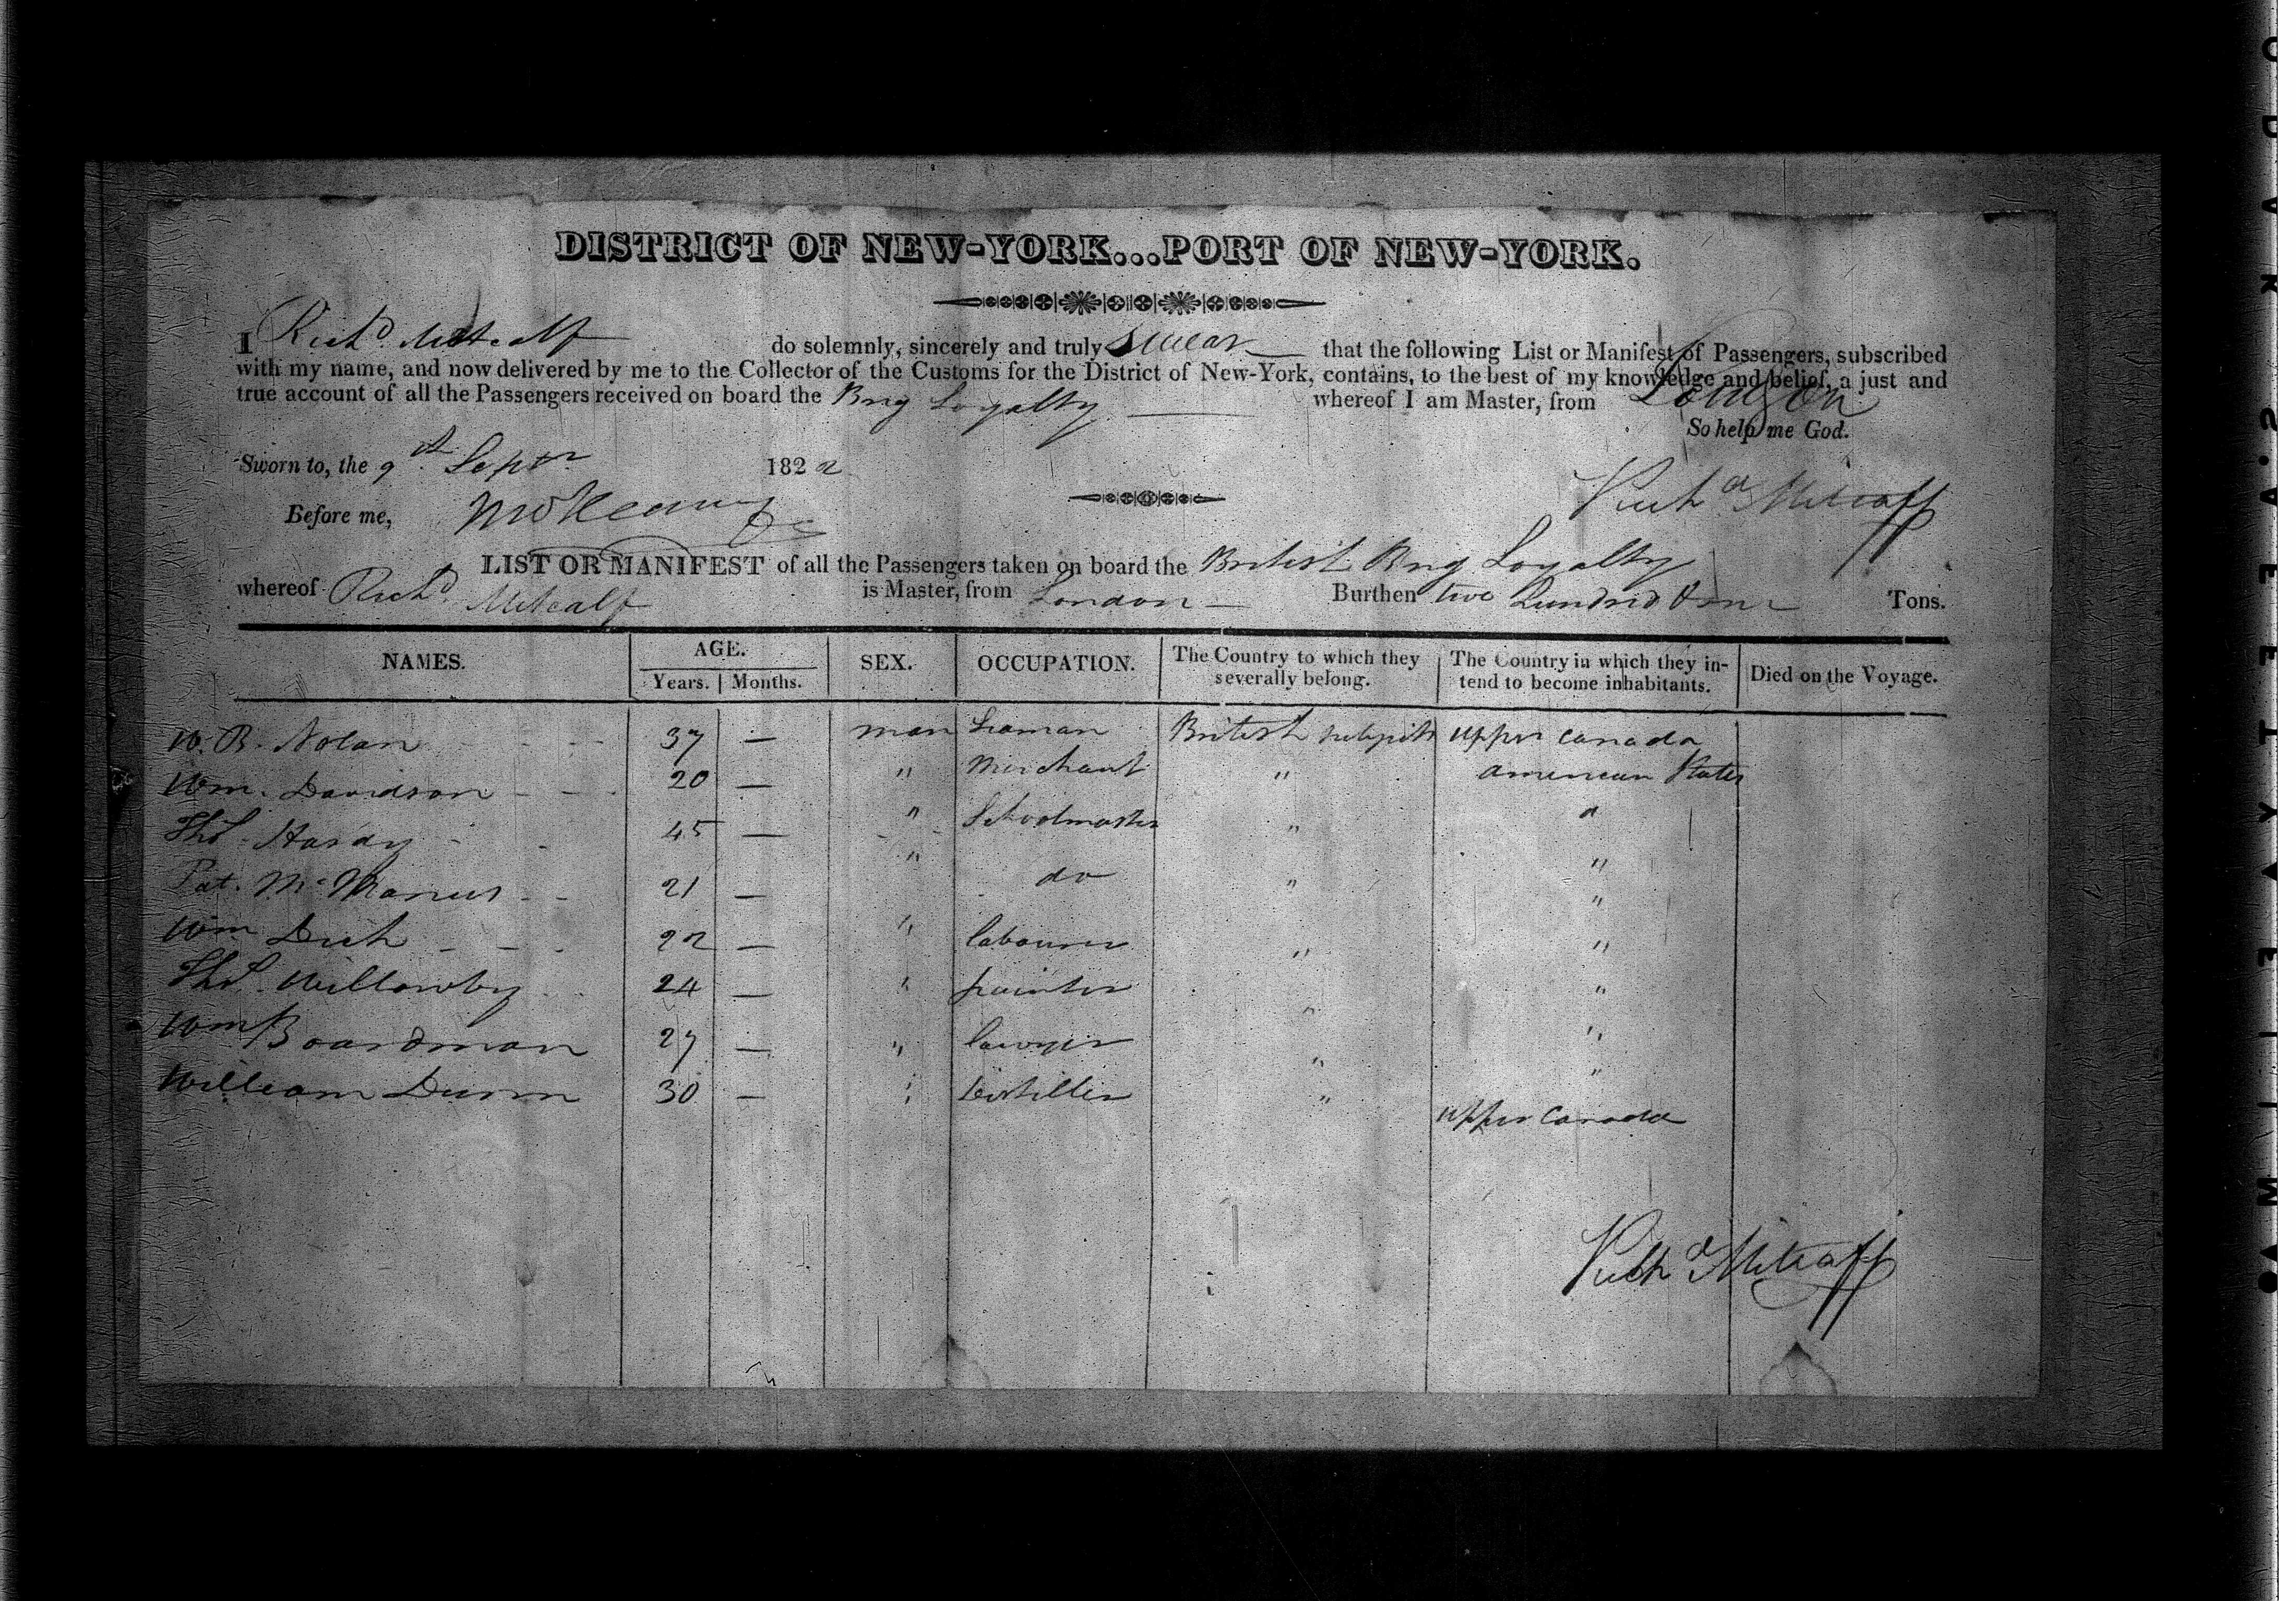 DISTRICT OF NEW-YORK...PORT OF NEW-YORK.
I Richd. Metcalf do solemnly, sincerely and truly swear that the following List or Manifest of Passengers, subscribed
with my name, and now delivered by me to the Collector of the Customs for the District of New-York, contains, to the best of my knowledge and belief, a just and
true account of all the Passengers received on board the Brig Loyalty whereof I am Master, from London
So help me God.
Sworn to, the 9th Septr 1822
Richd Metcalf
Before me,
LIST OR MANIFEST of all the Passengers taken on board the British Brig Loyalty
whereof Richd Metcalf is Master, from London Burthen two hundred & one Tons.
NAMES. AGE. SEX. OCCUPATION. The Country to which they severally belong. The Country in which they intend to become inhabitants. Died on the Voyage.
Years. Months.
W. B. Nolan 37 — man Seaman British subjects upper Canada
Wm. Davidson 20 — " Merchant " american States
Thos. Hardy 45 — " Schoolmaster " "
Pat. McManus 21 — " do " "
Wm Dich 22 — " labourer " "
Thos. Willowby 24 — " painter " "
Wm Boardman 27 — " lawyer " "
William Dunn 30 — " Distiller " upper Canada
Richd Metcalf